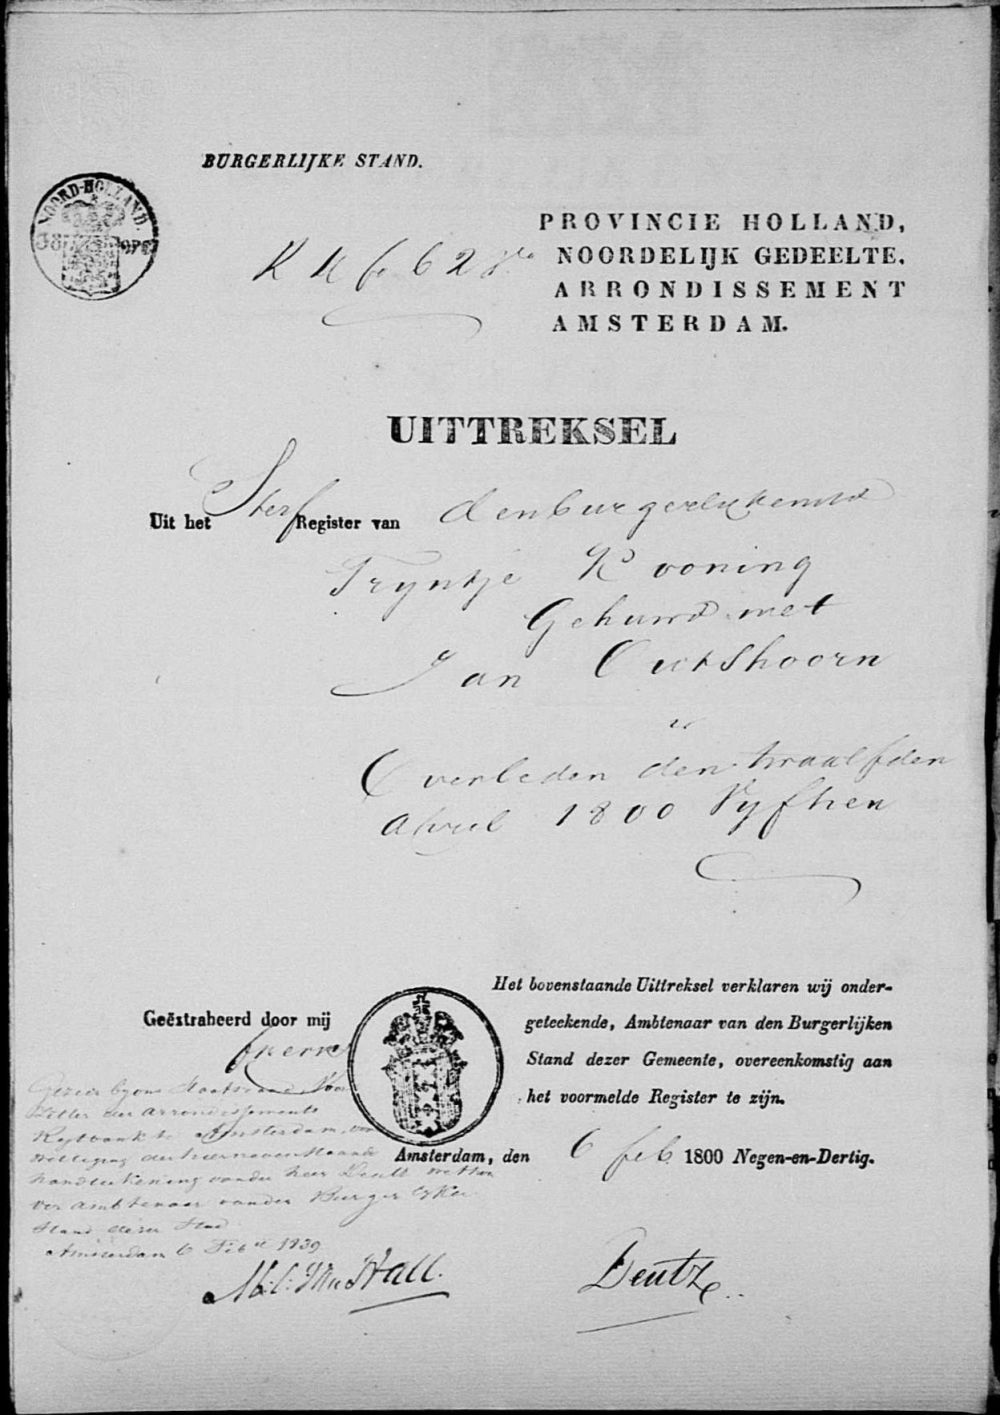 BURGERLIJKE STAND.
NOORD-HOLLAND.
PROVINCIE HOLLAND,
NOORDELIJK GEDEELTE,
ARRONDISSEMENT
AMSTERDAM.
K K fo 62
UITTREKSEL
Uit het Sterf Register van den burgerlykenstd
Tryntje Kooning
Gehuwd met
Jan Outshoorn
is
Overleden den twaalfden
April 1800 Vyftien
Het bovenstaande Uittreksel verklaren wij onder-
geteekende, Ambtenaar van den Burgerlijken
Stand dezer Gemeente, overeenkomstig aan
het voormelde Register te zijn.
Geëxtraheerd door mij
Amsterdam, den 6 feb 1800 Negen-en-Dertig.
Gezien by ons Staatsraad Voor
zitter der arrondissements
Regtbank te Amsterdam, voor
wettiging der hiernevenstaande
handteekening van den heer Deutz wethou
der ambtenaar van den Burgerlyken
Stand dezer Stad
Amsterdam 6 Feb 1839
Deutz
M: C: Van Hall.